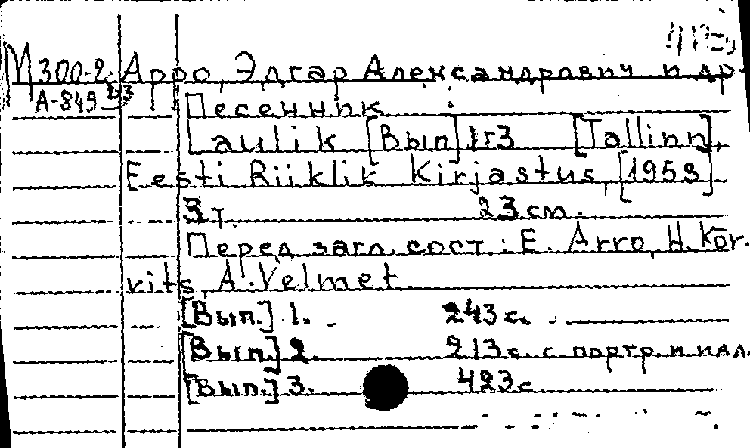 М300-2 Арро, Эдгар Александрович и др.
А-849
Песенник
Laulik [Вып] 1-3 [Tallinn],
Eesti Riiklik Kirjastus, [1953]
3 т. 23 см.
Перед загл. сост.: E. Arro, H. Kõr-
vits, A. Velmet
[Вып.] 1. 243 с.
[Вып.] 2. 213 с. с портр. и илл.
[Вып.] 3. 423 с